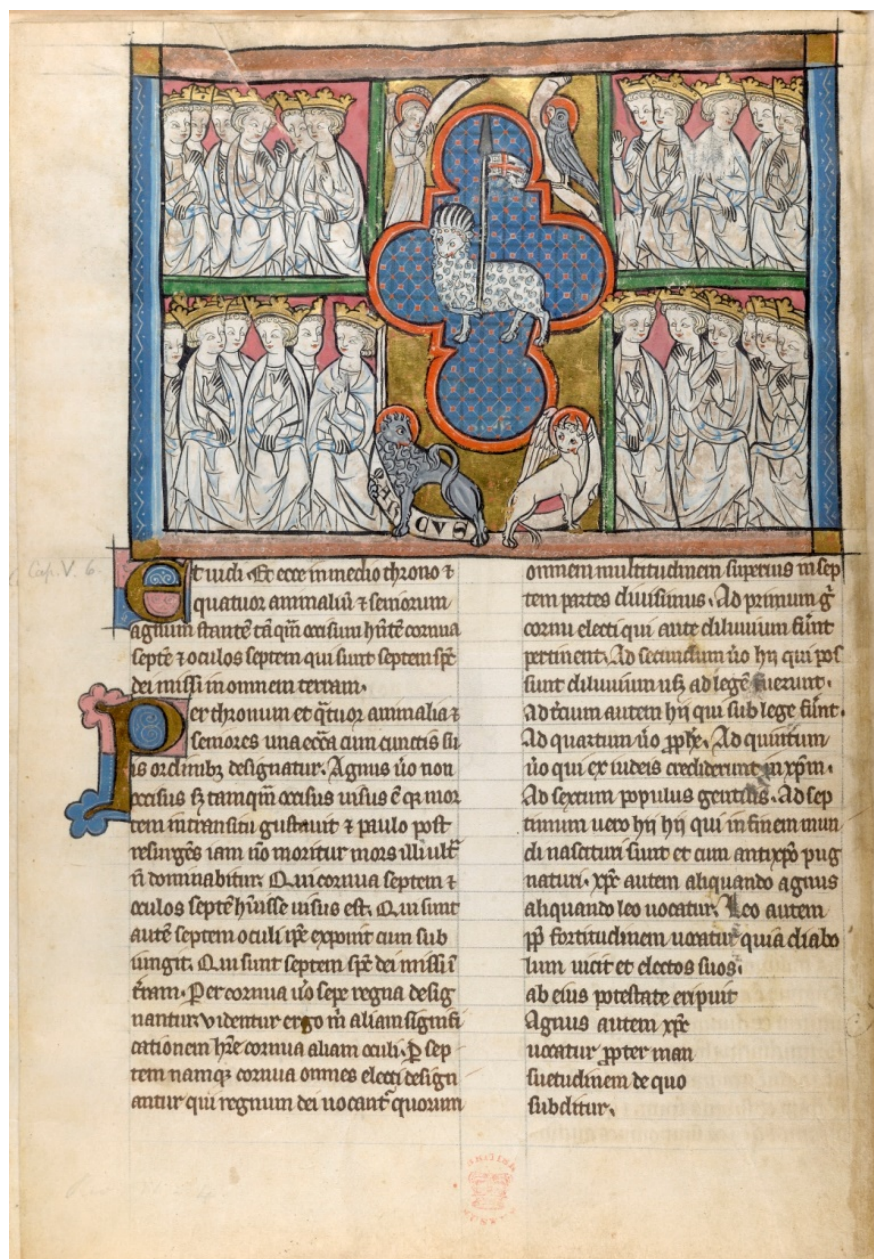 MARCVS
Cap. V. 6.
Et uidi. Et ecce in medio throno ⁊
quatuor animaliū ⁊ seniorum
agnum stantē tāqm̄ occisum hn̄tē cornua
septē ⁊ oculos septem qui sunt septem sp̄c
dei missi in omnem terram.
Per thronum et q̄tuor animalia ⁊
seniores una ecc̄a cum cunctis su
is ordinibꝫ designatur. Agnus ůo non
occisus sꝫ tamqm̄ occisus uisus ē qꝫ mor
tem in transitu gustauit ⁊ paulo post
resurgēs iam ůo moritur mors illi ult̄
n̄ dominabitur. Qui cornua septem ⁊
oculos septē hūisse uisus est. Qui sunt
autē septem oculi ip̄e exponit cum sub
iungit. Qui sunt septem sp̄c dei missi ī
t̄ram. Per cornua ůo sepe regna desig
nantur videntur ergo m̄ aliam signifi
cationem hr̄e cornua aliam oculi. ꝑ sep
tem namqꝫ cornua omnes electi design
antur qui regnum dei uocant᷑ quorum
omnem multitudinem superius in sep
tem partes diuisimus. Ad primum ḡ
cornu electi qui ante diluuium fūnt
pertinent. Ad secundum ůo hij qui pos
sunt diluuium usꝫ ad legē fuerunt.
Ad t̄cium autem hij qui sub lege fūnt.
Ad quartum ůo ꝓph̄e. Ad quintum
ůo qui ex iudeis crediderunt in xp̄m.
Ad sextum populus gentilis. Ad sep
timum uero hij hij qui in finem mun
di nascituri sunt et cum antixp̄o pug
naturi. xp̄c autem aliquando agnus
aliquando leo uocatur. Leo autem
ꝓp̄ fortitudinem uocatur quia diabo
lum uicit et electos suos.
ab eius potestate eripuit
Agnus autem xp̄c
uocatur ꝓpter man
suetudinem de quo
subditur.